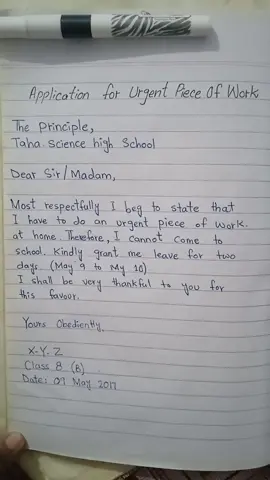 Application for Urgent Piece Of Work
The Principle,
Taha Science high School
Dear Sir/Madam,
Most respectfully I beg to state that
I have to do an urgent piece of work.
at home. Therefore, I cannot come to
school. Kindly grant me leave for two
days (May 9 to My 10)
I shall be very thankful to you for
this favour.
Yours Obediently,
X.Y.Z
Class 8 (B)
Date: 09 May 2017